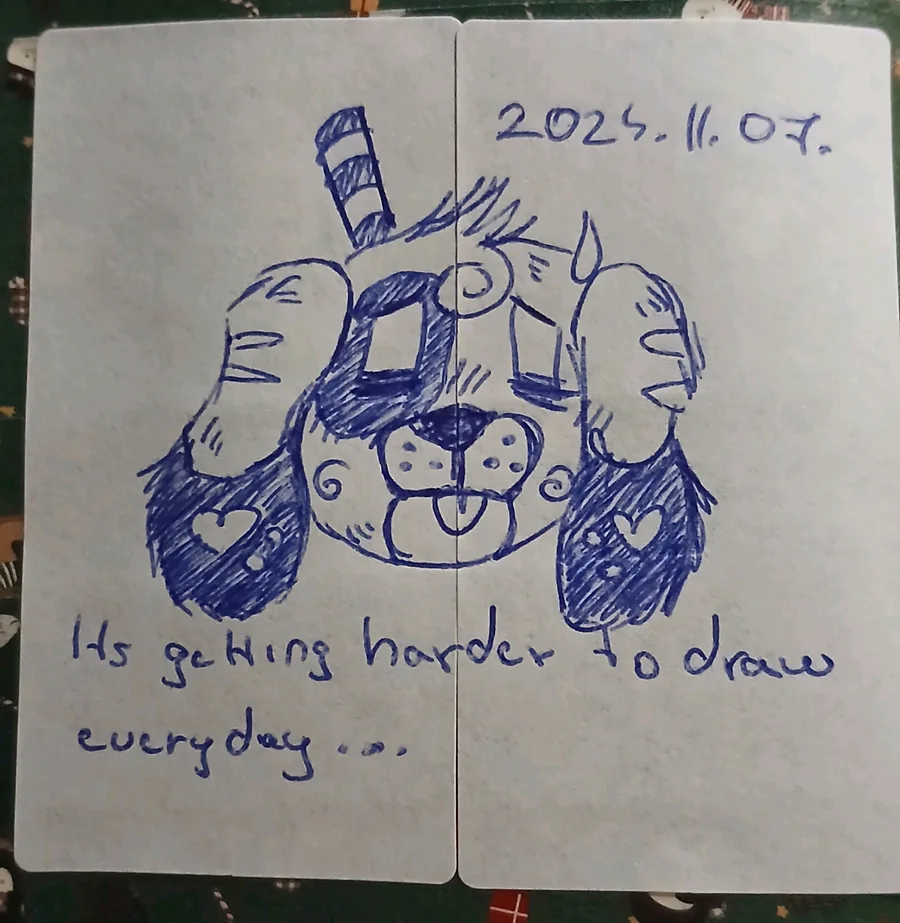 2025.11.07.
Its getting harder to draw
everyday....